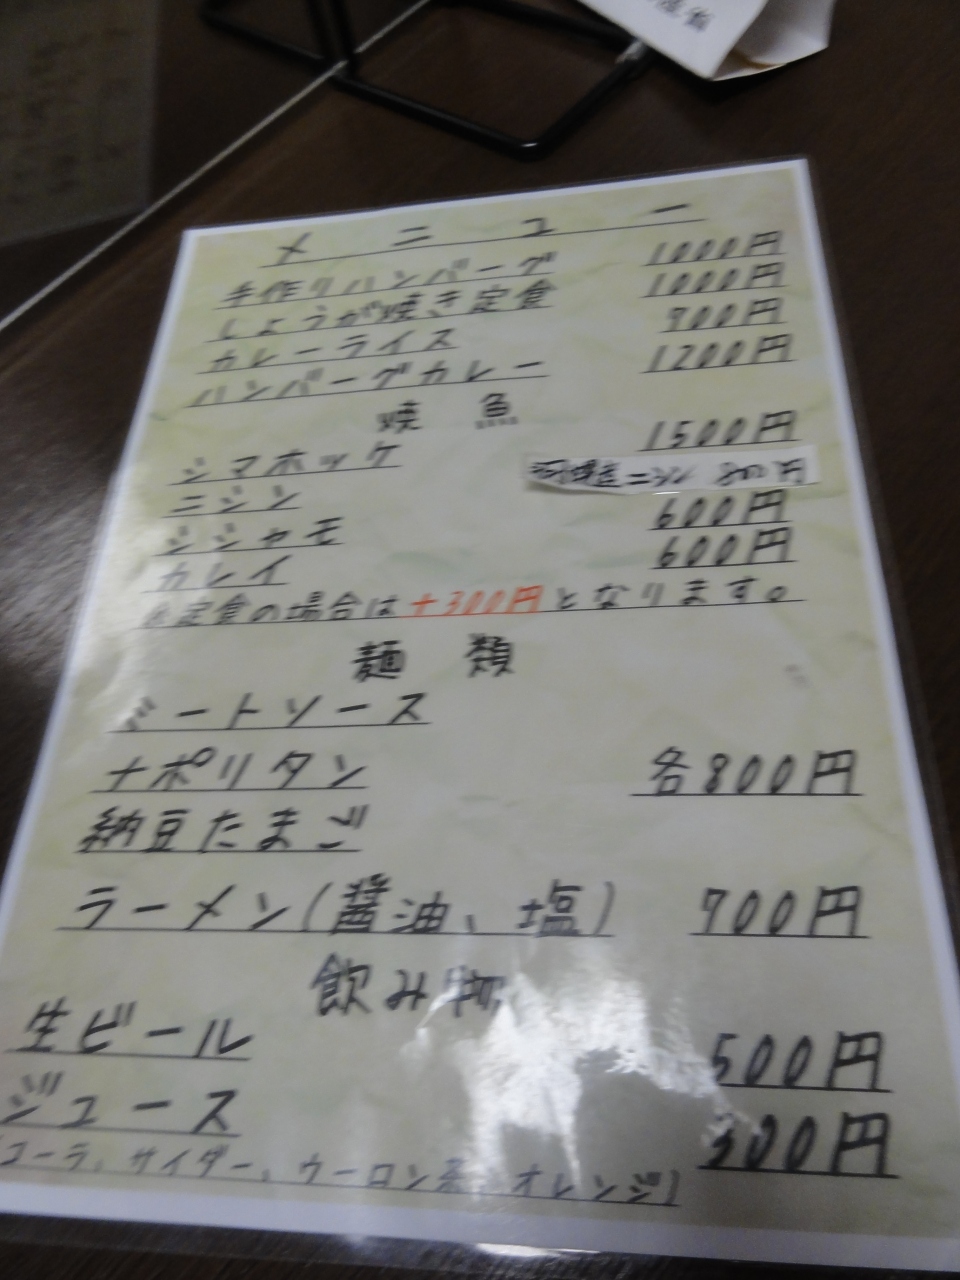 メニュー
手作りハンバーグ 1000円
しょうが焼き定食 1000円
カレーライス 900円
ハンバーグカレー 1200円
焼 魚
シマホッケ 1500円
ニシン ニシン 800円
シシャモ 600円
カレイ 600円
※定食の場合は+300円となります。
麺 類
ミートソース
ナポリタン 各800円
納豆たまご
ラーメン(醤油、塩) 700円
飲み物
生ビール 500円
ジュース 300円
(コーラ、サイダー、ウーロン茶、オレンジ)